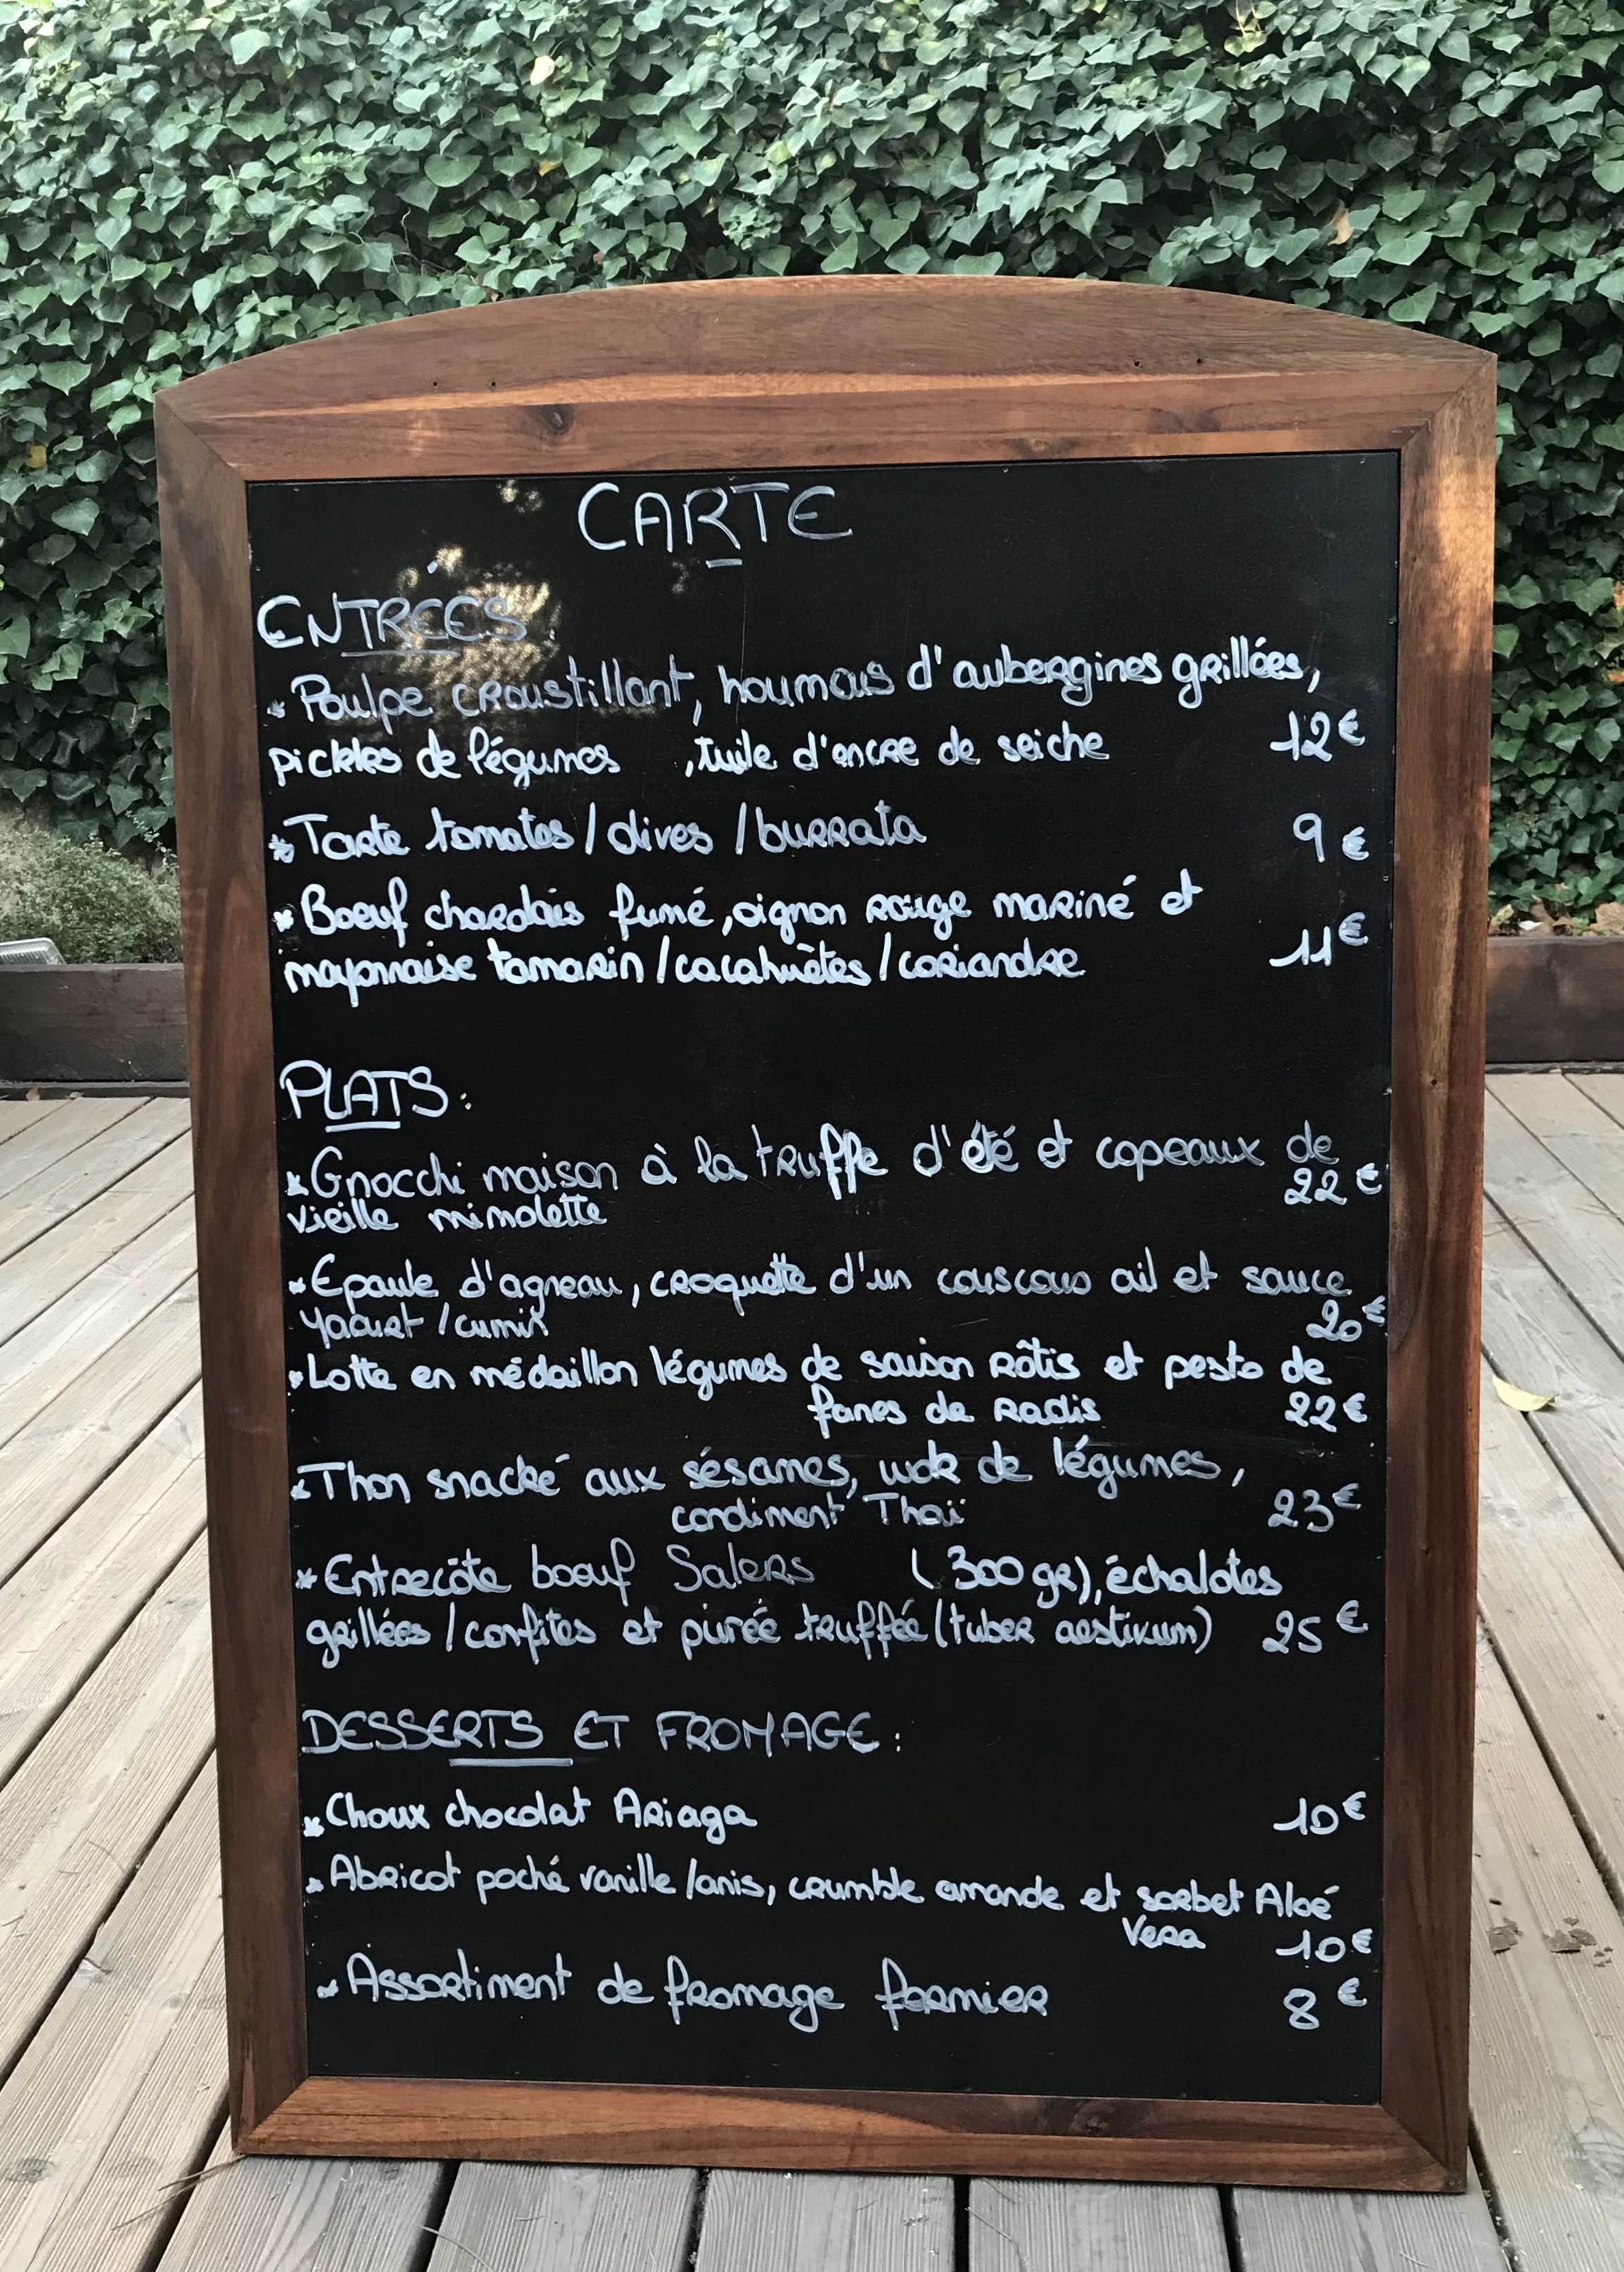 CARTE
ENTRÉES:
* Poulpe croustillant, houmous d'aubergines grillées,
pickles de légumes , tuile d'encre de seiche 12€
* Tarte tomates / olives / burrata 9 €
* Boeuf charolais fumé, oignon rouge mariné et
mayonnaise tamarin / cacahuètes / coriandre 11€
PLATS:
* Gnocchi maison à la truffe d'été et copeaux de
vieille mimolette 22 €
* Epaule d'agneau, croquette d'un couscous ail et sauce
yaourt / cumin 20€
* Lotte en médaillon légumes de saison rôtis et pesto de
fanes de radis 22€
* Thon snacké aux sésames, wok de légumes,
condiment Thaï 23€
* Entrecôte boeuf Salers (300 gr), échalotes
grillées / confites et purée truffée (tuber aestivum) 25€
DESSERTS ET FROMAGE:
* Choux chocolat Ariaga 10€
* Abricot poché vanille / anis, crumble amande et sorbet Aloé
Vera 10€
* Assortiment de fromage fermier 8 €